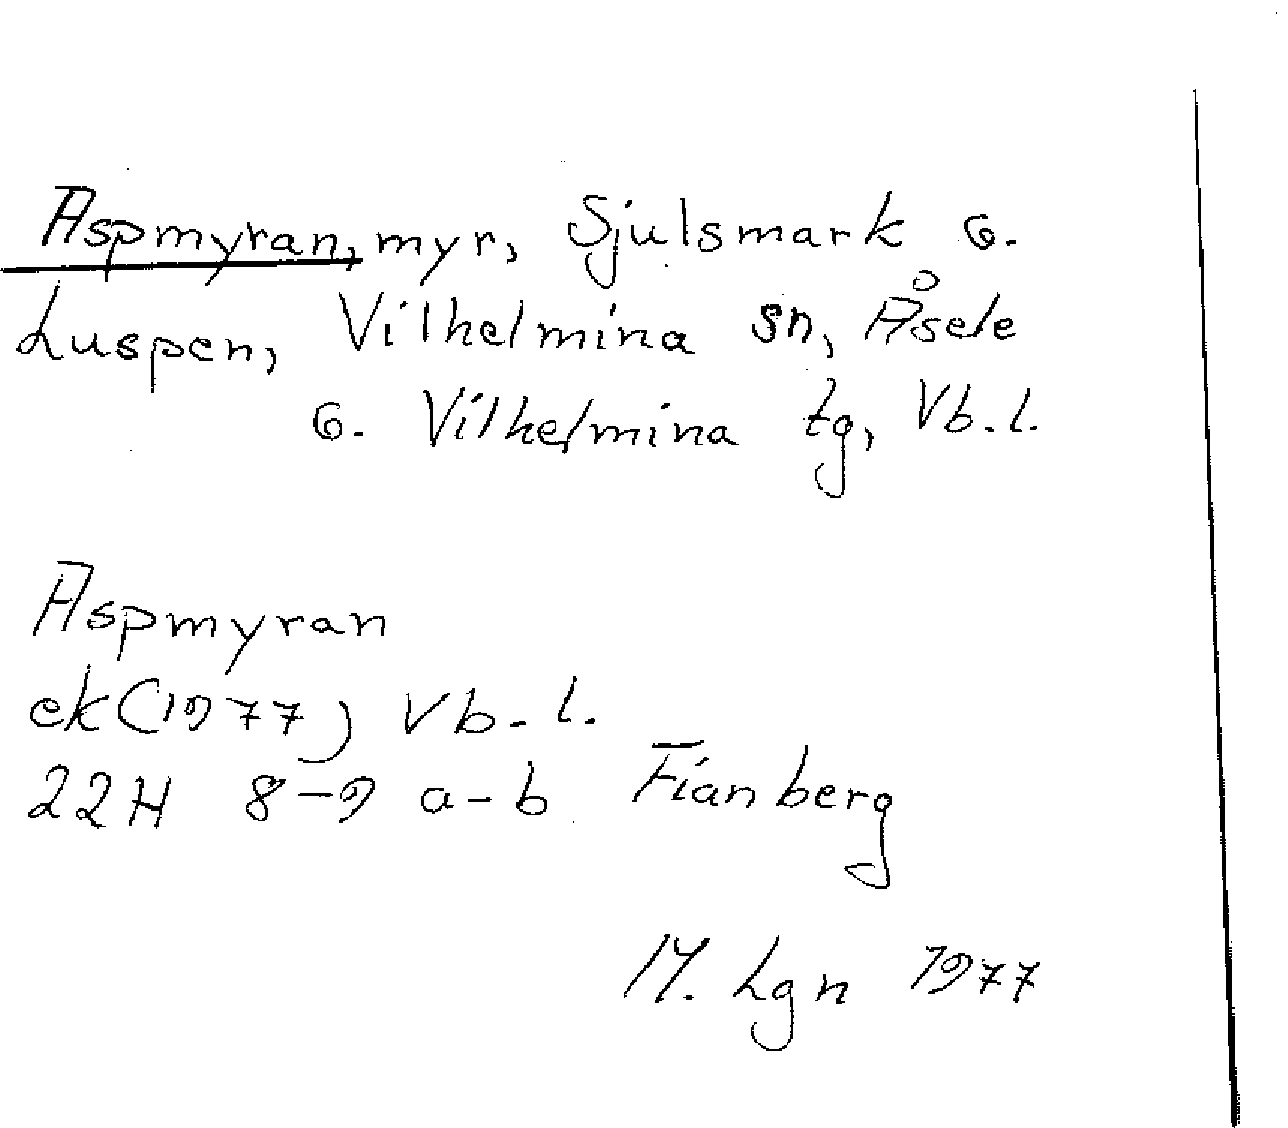 Aspmyran, myr, Sjulsmark o.
Luspen, Vilhelmina sn, Åsele
o. Vilhelmina tg, Vb.l.
Aspmyran
ek(1977) Vb-l.
22H 8-9 a-b Fianberg
M. Lgn 1977